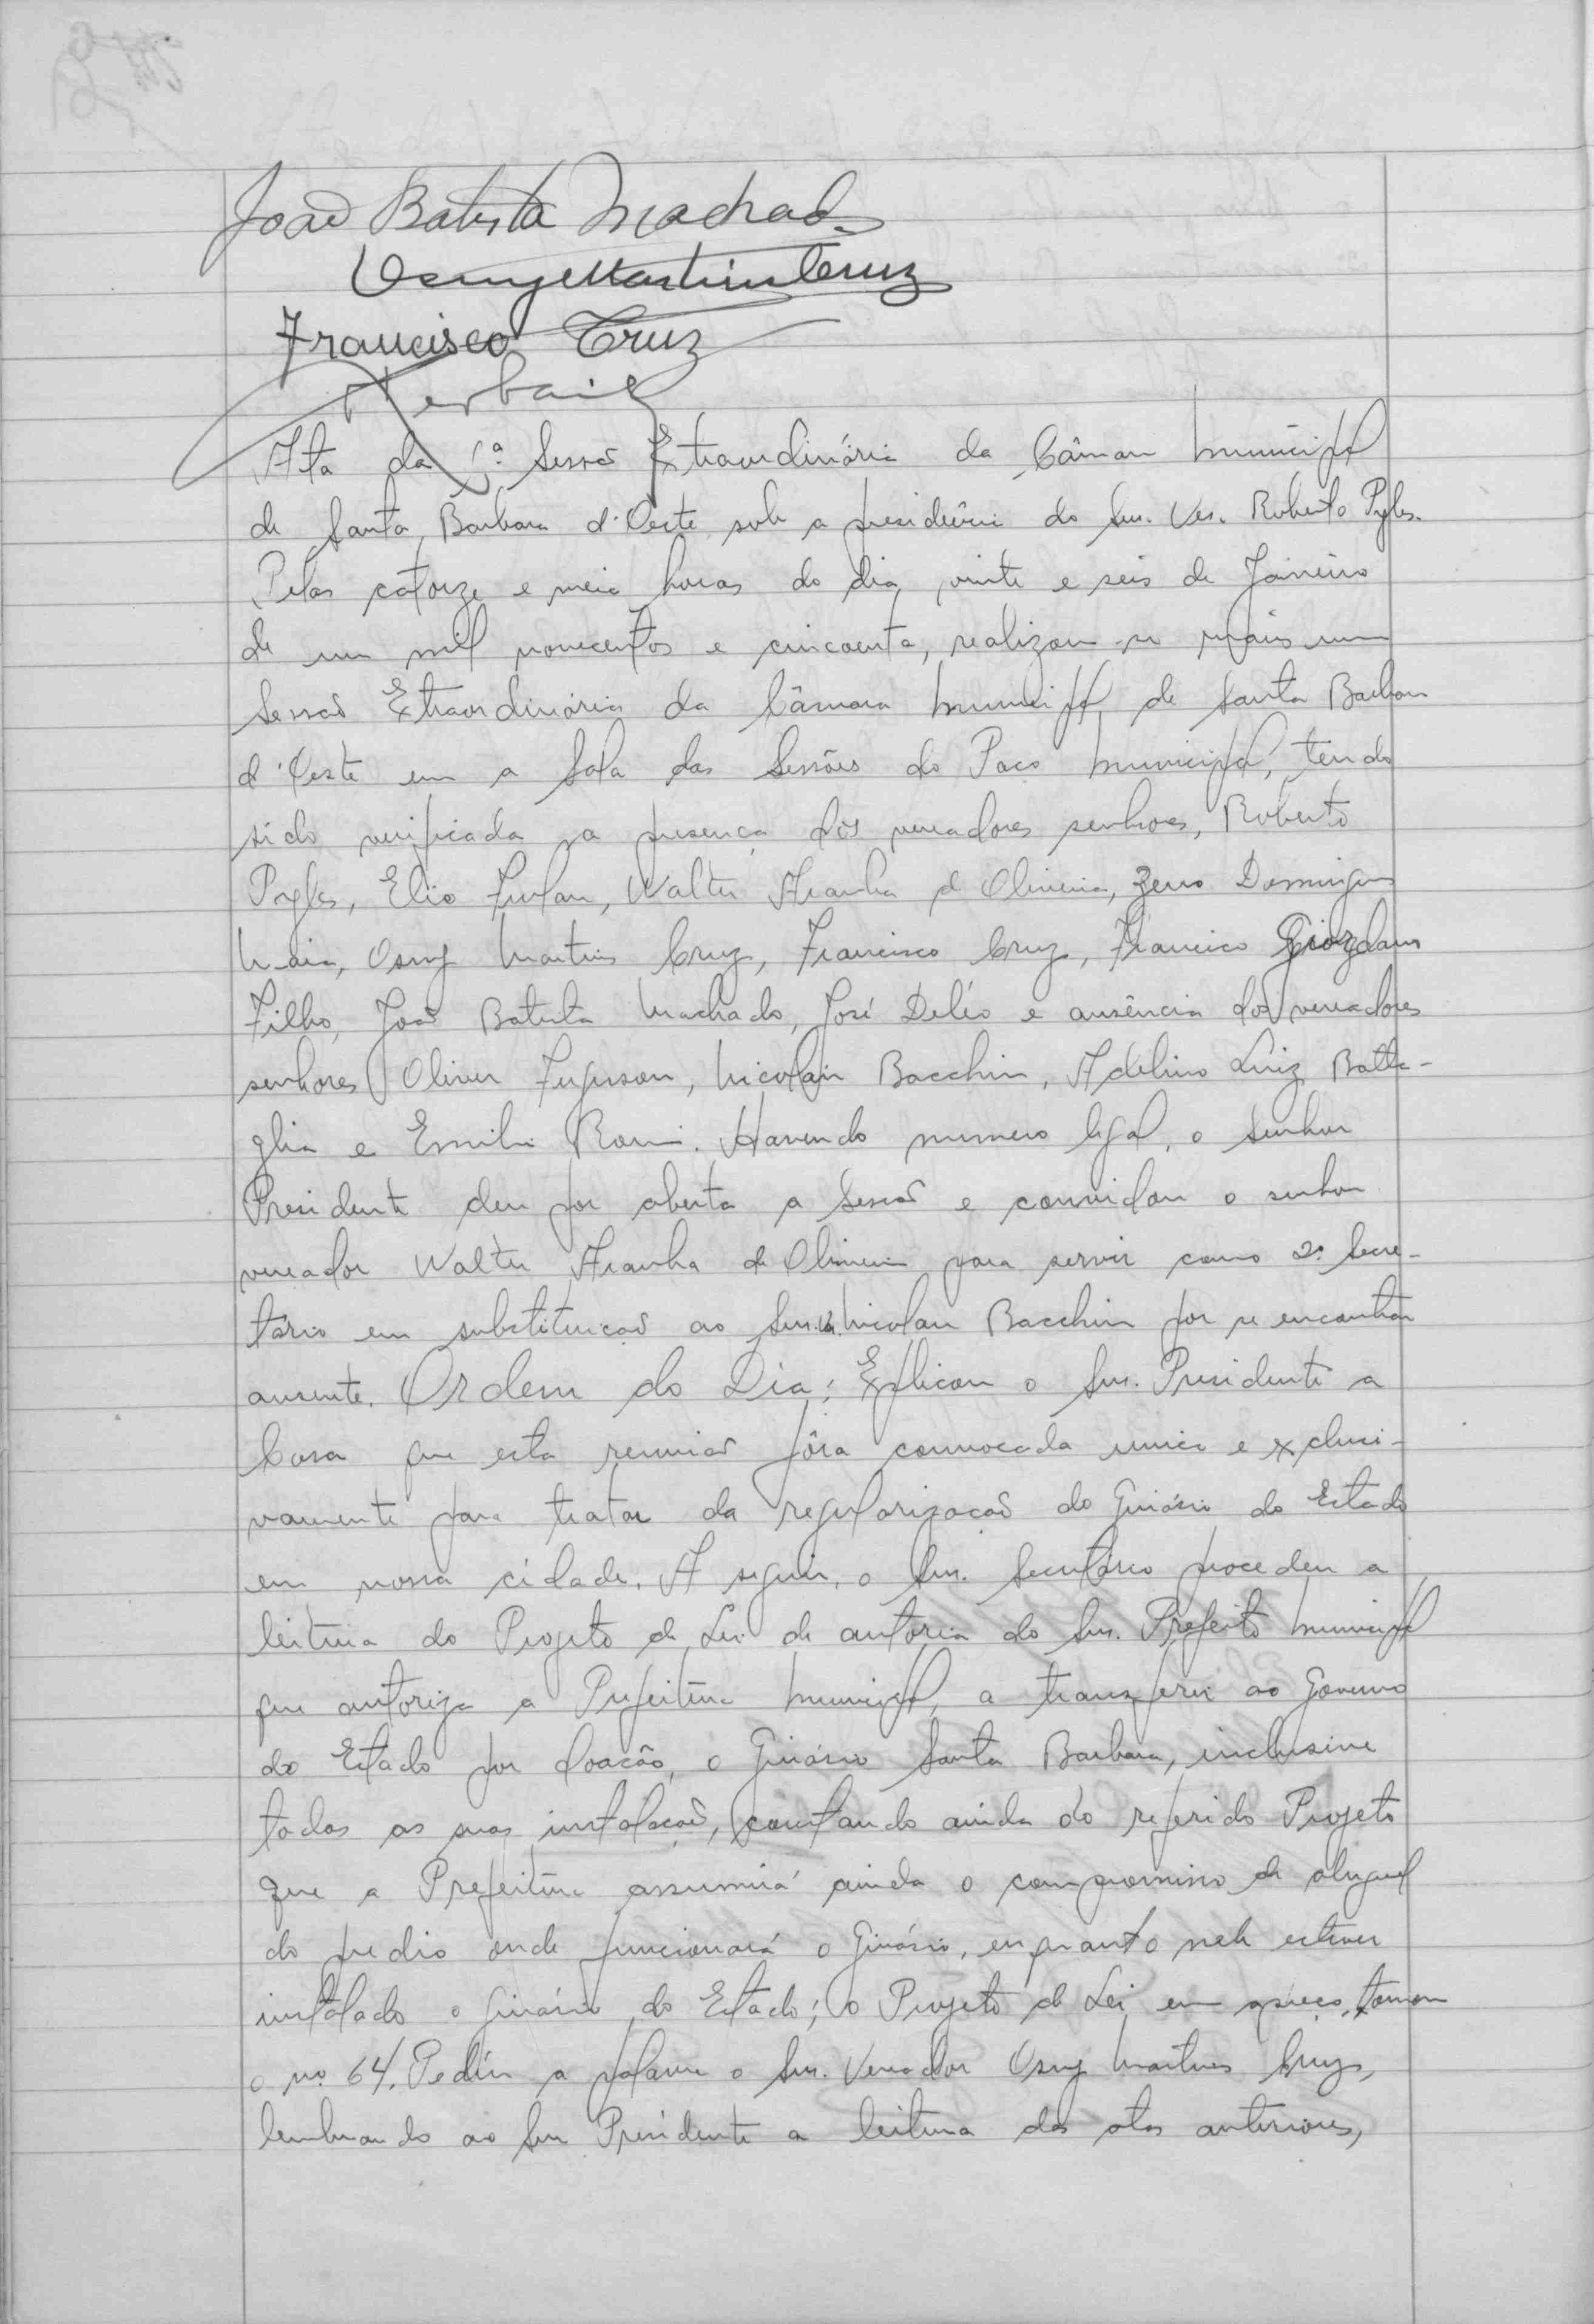 João Batista Machado
Osmy Martins Cruz
Francisco Cruz
Ata da 1ª. Sessão Extraordinária da Câmara Municipal
de Santa Barbara d'Oeste sob a presidência do Snr. Ver. Roberto Pyles.
Pelas catorze e meia horas do dia vinte e seis de Janeiro
de um mil novecentos e cincoenta, realizou-se mais uma
Sessão Extraordinária da Câmara Municipal de Santa Barbara
d'Oeste em a Sala das Sessões do Paço Municipal, tendo
sido verificada a presença dos vereadores senhores, Roberto
Pyles, Elio Furlan, Walter Aranha de Oliveira, Zeno Domingues
Maia, Osmy Martins Cruz, Francisco Cruz, Francisco Giordano
Filho, João Batista Machado, José Deléo e ausência dos vereadores
senhores Oliver Ferguson, Nicolau Bacchin, Adelino Luiz Batta-
glia e Emilio Romi. Havendo numero legal, o Senhor
Presidente deu por aberta a Sessão e convidou o senhor
vereador Walter Aranha de Oliveira para servir como 2º. Secre-
tário em substituição ao Snr. V. Nicolau Bacchin por se encontrar
ausente. Ordem do Dia: Explicou o Snr. Presidente a
Casa que esta reunião fôra convocada unica e exclusi-
vamente para tratar da regularização do Ginásio do Estado
em nossa cidade. A seguir, o Snr. Secretário procedeu a
leitura do Projeto de Lei de autoria do Snr. Prefeito Municipal
que autoriza a Prefeitura Municipal, a transferir ao Governo
do Estado por doação, o Ginásio Santa Barbara, inclusive
todas as suas instalação, constando ainda do referido Projeto
que a Prefeitura assumirá ainda o compromisso de aluguel
do predio onde funcionará o Ginásio, enquanto nele estiver
instalado o Ginásio do Estado; o Projeto de Lei em apreço, tomou
o nº 64. Pediu a palavra o Snr. Vereador Osmy Martins Cruz,
lembrando ao Snr Presidente a leitura das atas anteriores,